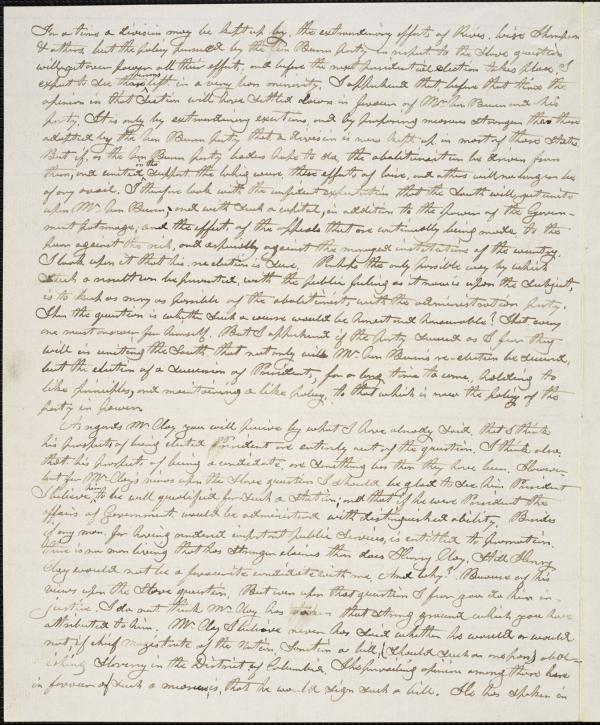 For a time a division may be kept up by the extraordinary efforts of Rives, Wise Thompson
& others, but the policy pursued by the Van Buren party in respect to the slave question
will yet over power all their effort, and before the next presidential election takes place, I
expect to see those persons left in a very lean minority. I apprehend that before that time the
opinion in that section will have settled down in favour of Mr Van Buren and his
party. It is only by extraordinary exertions, and by proposing measures stronger than those
adopted by the Van Buren party that a division is now kept up in most of those States.
But if, as the Van Buren party leaders hope to do, the abolitionist can be driven from
them, and united in the support the whigs were, these efforts of Wise, and others will no longer be
of any avail. I therefore look with the confident expectation that the South will yet unite
upon Mr Van Buren, and with such a capital, in addition to the power of the Govern-
ment patronage, and the effect of the appeals that are continually being made to the
poor against the rich, and especially against the monied institutions of the country.
I look upon it that his reelection is sure. Perhaps the only possible way by which
such a result can be prevented, with the public feeling as it now is upon the subject,
is to keep as many as possible of the abolitionist, with the administration party.
Then the question is whether such a course would be honest and honourable? That every
one must answer for himself. But I apprehend if the party succeed as I fear they
will in uniting the South, that not only will Mr Van Buren's re-election be secured,
but the election of a succession of Presidents, for a long time to come, holding to
like principles, and maintaining a like policy, to that which is now the policy of the
party in power.
As regards Mr Clay you will perceive by what I have already said, that I think
his prospects of being elected President are entirely out of the question. I think also,
that his prospects of being a candidate, are something less than they have been. However
but for Mr Clay's views upon the slave question I should be glad to see him President
I believe him to be well qualified for such a station, and that if he were President the
affairs of Government would be administered with distinguished ability. Besides
if any man for having rendered important public services, is entitled to promotion,
there is no man living that has stronger claims than does Henry Clay. Still Henry
Clay would not be a favourite candidate with me. And why? Because of his
views upon the slave question. But even upon that question I fear you do him in-
justice. I do not think Mr Clay has taken that strong ground which you have
attributed to him. Mr Clay I believe never has said whether he would or would
not if chief magistrate of the Nation, sanction a bill, (should such an one pass) abol-
ishing slavery in the District of Columbia. The prevailing opinion among those here
in favour of such a measure is, that he would sign such a bill. He has spoken in